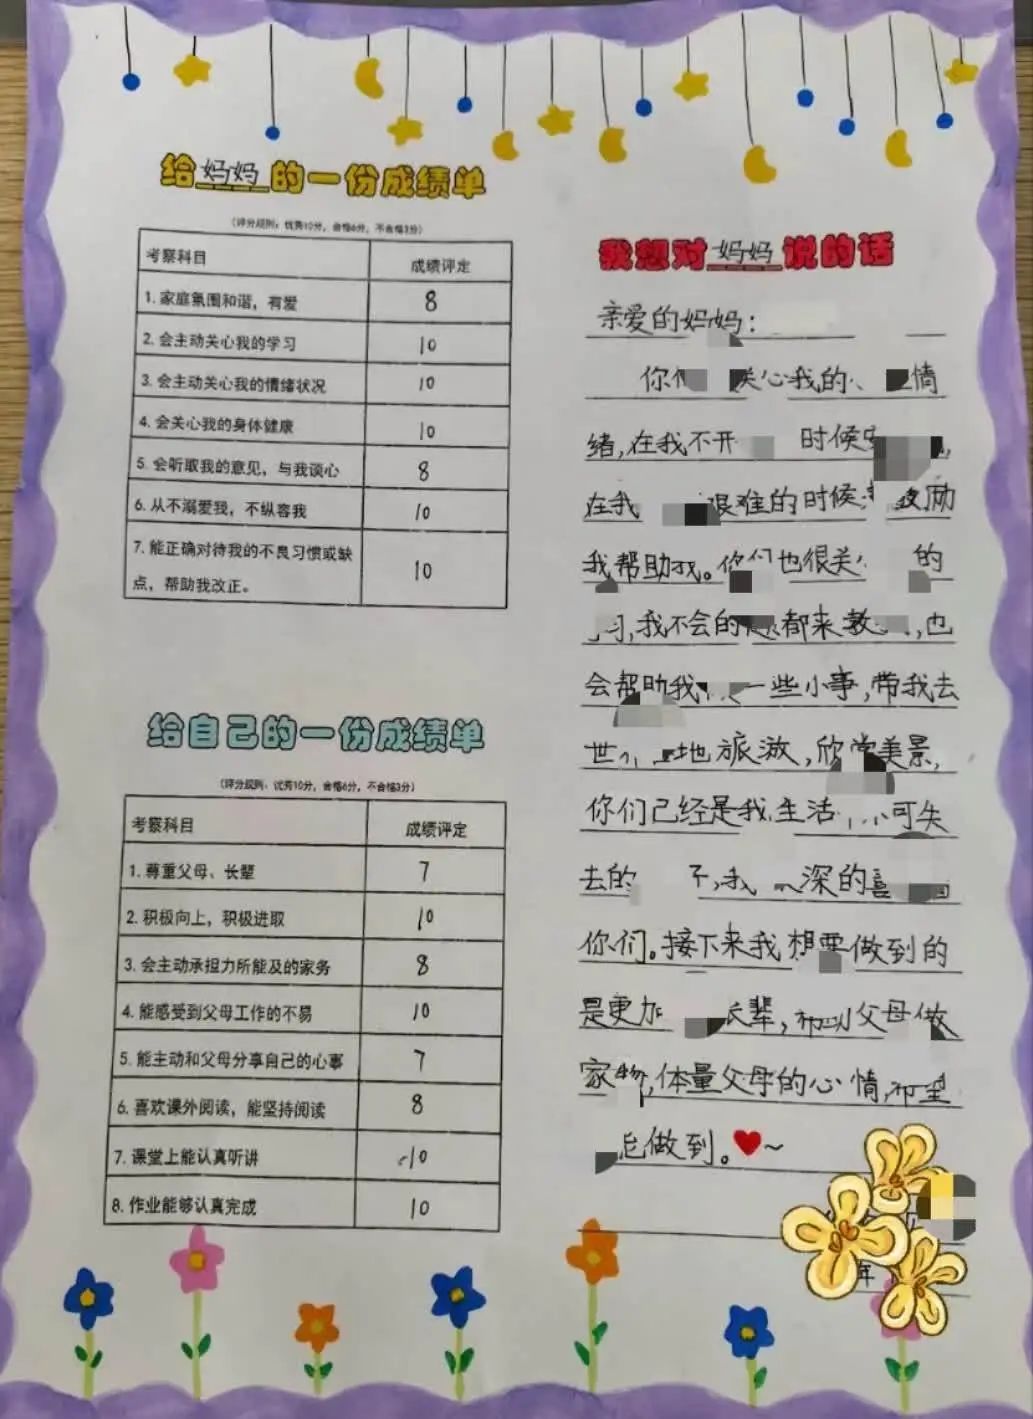 给妈妈的一份成绩单
（评分规则：优秀10分，合格6分，不合格3分）
考察科目 成绩评定
1.家庭氛围和谐，有爱 8
2.会主动关心我的学习 10
3.会主动关心我的情绪状况 10
4.会关心我的身体健康 10
5.会听取我的意见，与我谈心 8
6.从不溺爱我，不纵容我 10
7.能正确对待我的不良习惯或缺
点，帮助我改正。 10
给自己的一份成绩单
（评分规则：优秀10分，合格6分，不合格3分）
考察科目 成绩评定
1.尊重父母、长辈 7
2.积极向上，积极进取 10
3.会主动承担力所能及的家务 8
4.能感受到父母工作的不易 10
5.能主动和父母分享自己的心事 7
6.喜欢课外阅读，能坚持阅读 8
7.课堂上能认真听讲 10
8.作业能够认真完成 10
我想对妈妈说的话
亲爱的妈妈：
你 关心我的 情
绪，在我不开 时候
在我 艰难的时候
我帮助我。你们也很关 的
习，我不会的 都来教 ，也
会帮助我 一些小事，带我去
世 地旅游，欣赏美景，
你们已经是我生活 可失
去的 ，我 深的喜
你们。接下来我想要做到的
是更加 长辈， 父母做
家物，体量父母的心情，
做到。❤~
年